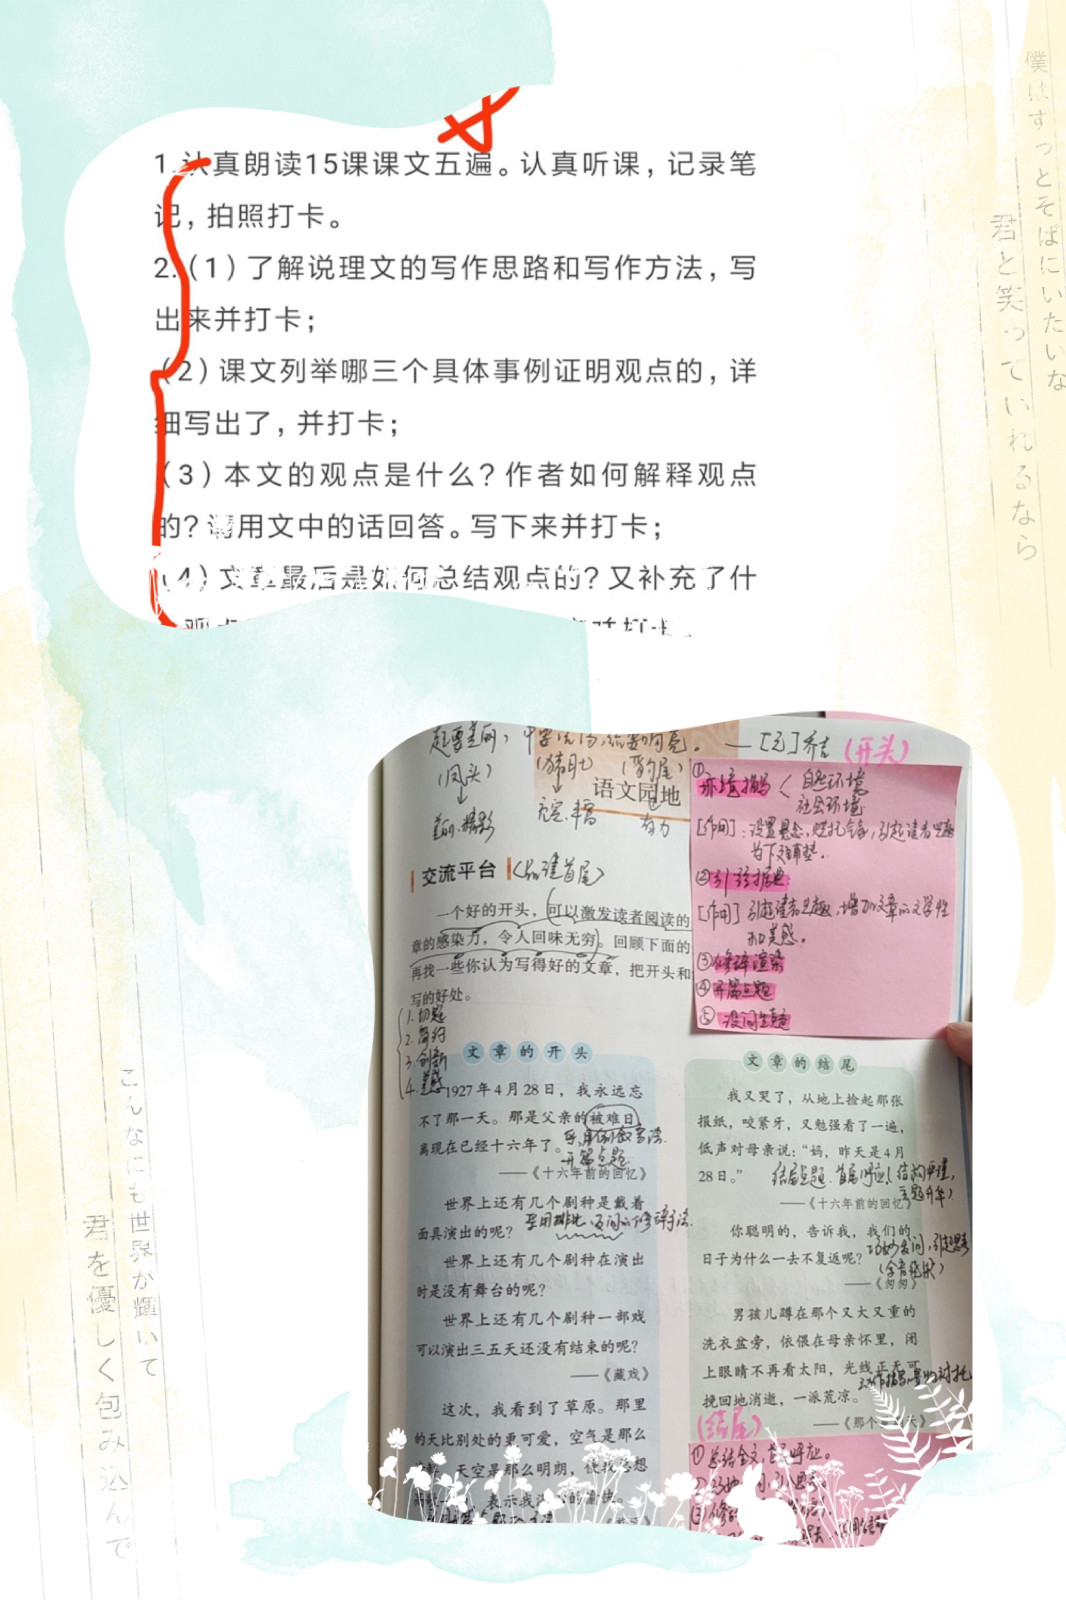 1.认真朗读15课课文五遍。认真听课，记录笔
记，拍照打卡。
2.（1）了解说理文的写作思路和写作方法，写
出来并打卡；
（2）课文列举哪三个具体事例证明观点的，详
细写出了，并打卡；
（3）本文的观点是什么？作者如何解释观点
的？请用文中的话回答。写下来并打卡；
（4）文章最后是如何总结观点的？又补充了什
僕はずっとそばにいたいな
君と笑っていれるなら
こんなにも世界が輝いて
君を優しく包み込んで
——[元]乔吉
（凤头）
（猪肚）
（豹尾）
语文园地
交流平台
一个好的开头，可以激发读者阅读的
章的感染力，令人回味无穷。回顾下面的
再找一些你认为写得好的文章，把开头和
写的好处。
1.切题
2.简约
3.创新
4.美感
（开头）
①环境描写
自然环境
社会环境
[作用]：设置悬念，烘托气氛，引起读者思趣
为下文铺垫。
②引经据典
[作用]引起读者思趣，增加文章的文学性
和美感。
③修辞渲染
④开篇点题
⑤设问生趣
文章的开头
1927年4月28日，我永远忘
不了那一天。那是父亲的被难日，
离现在已经十六年了。
开篇点题
——《十六年前的回忆》
世界上还有几个剧种是戴着
面具演出的呢？
采用排比、反问的修辞手法.
世界上还有几个剧种在演出
时是没有舞台的呢？
世界上还有几个剧种一部戏
可以演出三五天还没有结束的呢？
——《藏戏》
这次，我看到了草原。那里
的天比别处的更可爱，空气是那么
天空是那么明朗，使我总想
表示我
的愉快。
文章的结尾
我又哭了，从地上捡起那张
报纸，咬紧牙，又勉强看了一遍，
低声对母亲说：“妈，昨天是4月
28日。”
结尾点题 首尾呼应
——《十六年前的回忆》
你聪明的，告诉我，我们的
日子为什么一去不复返呢？
巧妙发问，引起思考
——《匆匆》
男孩儿蹲在那个又大又重的
洗衣盆旁，依偎在母亲怀里，闭
上眼睛不再看太阳，光线正无可
挽回地消逝，一派荒凉。
——《那个
（结尾）
①总结全文，首尾呼应。